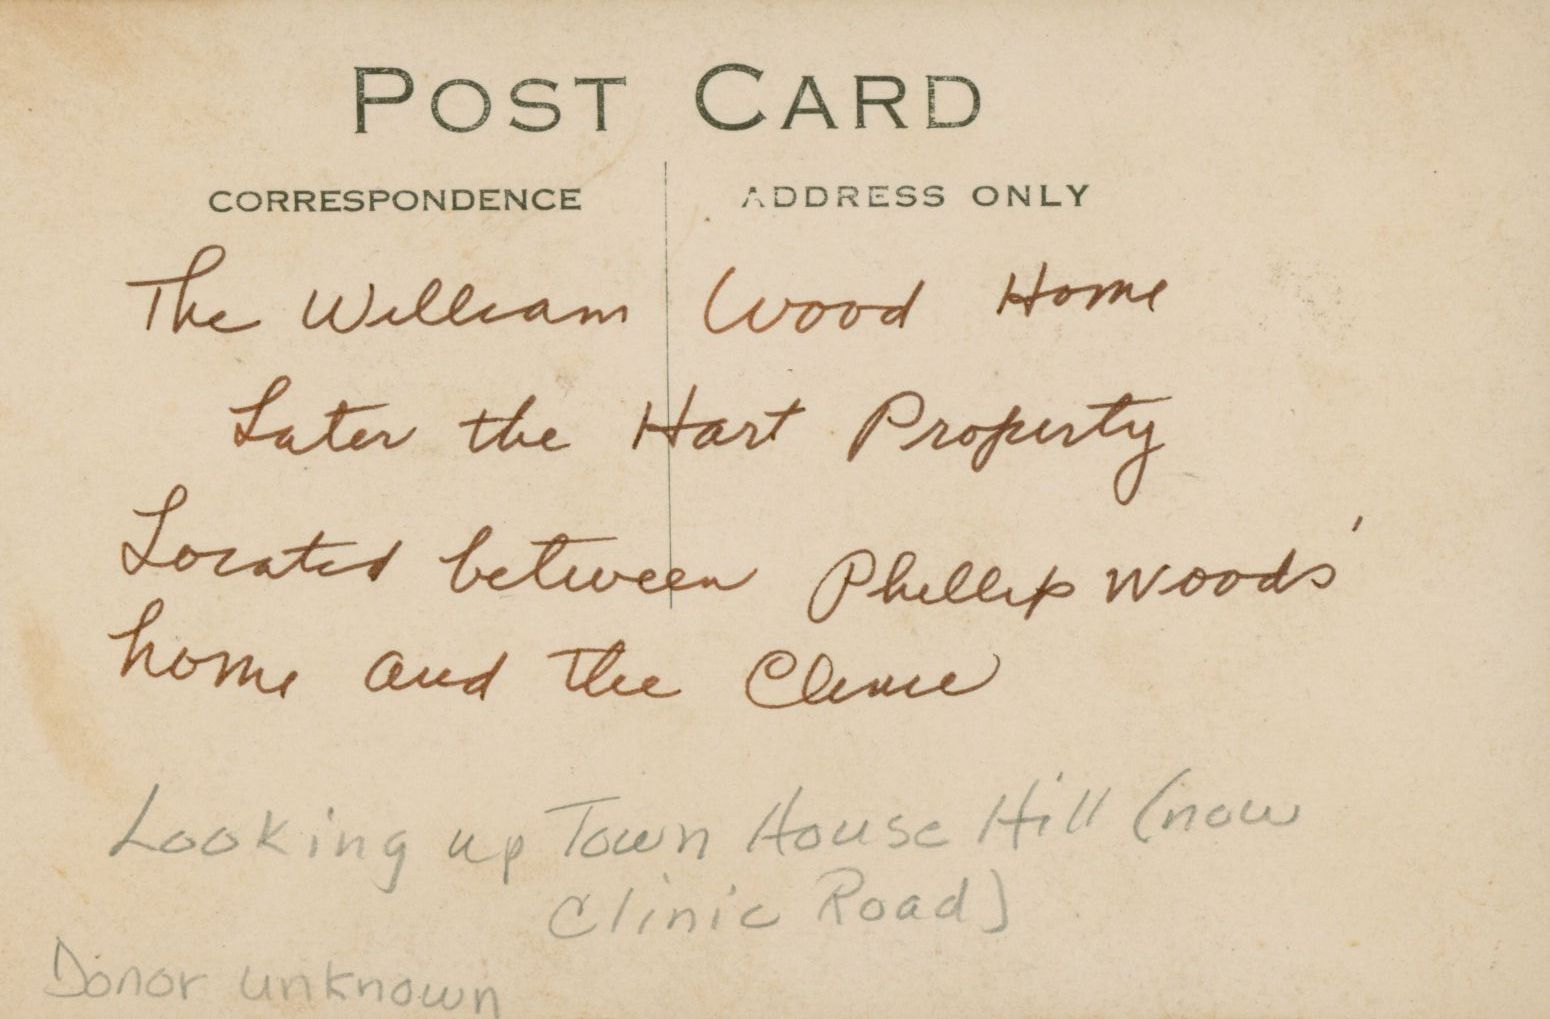 POST CARD
CORRESPONDENCE
ADDRESS ONLY
The William Wood Home
Later the Hart Property
Located between Phillip Woods'
home and the Clinic
Looking up Town House Hill (now
Clinic Road)
Donor unknown